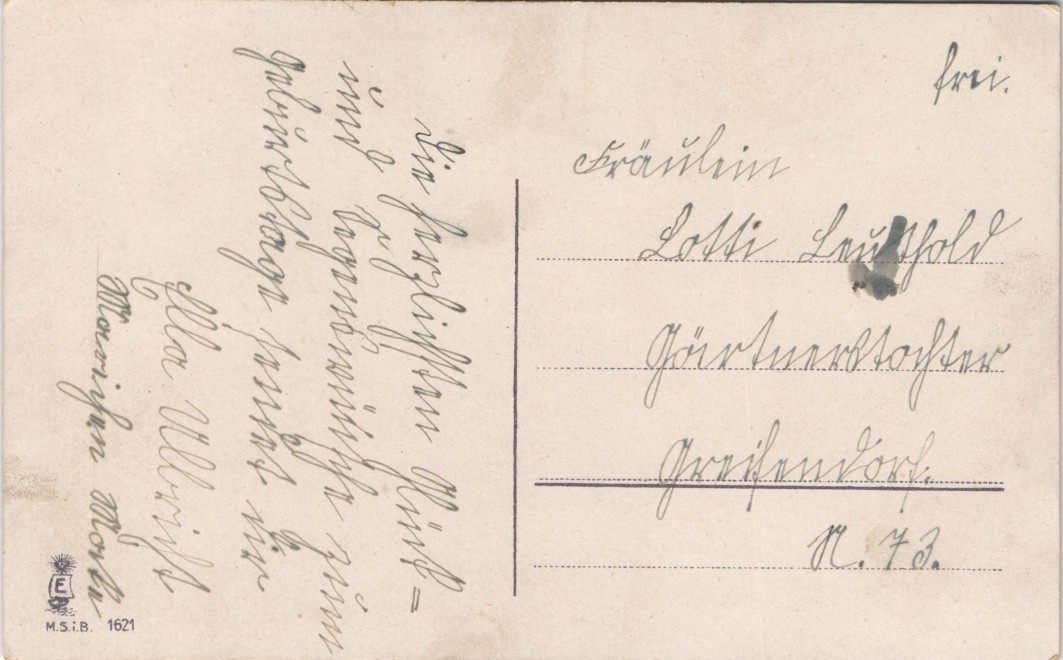 Die herzlichsten Glück=
und Segenswünsche zum
Geburtstage sendet dir
Ella Ulbricht
frei.
Fräulein
Lotti Leuthold
Gärtnerstochter
Greifendorf.
N. 73.
M.S.i.B. 1621
E